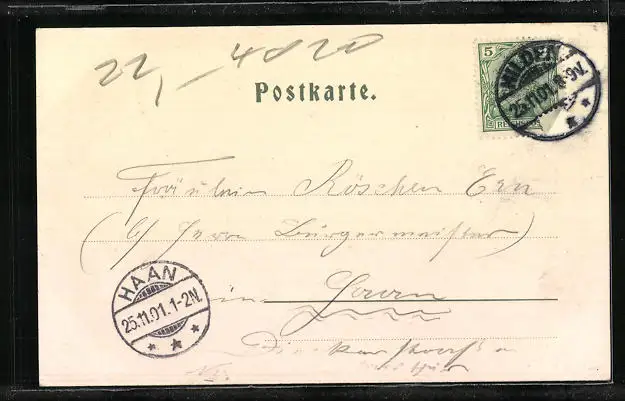 22,- 4020
5
HILDEN.
25.11.01. 8-9V.
Postkarte.
Fräulein Röschen Ern
(b/ Herrn Bürgermeister)
in Haan
HAAN
25.11.01. 1-2N.